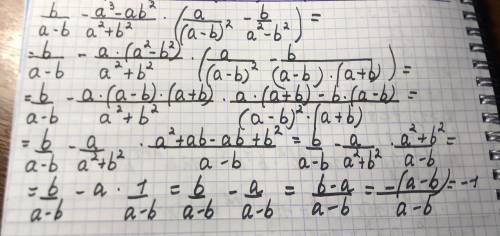 b/(a-b) - (a³-ab²)/(a²+b²) · (a/(a-b)² - b/(a²-b²)) =
= b/(a-b) - (a·(a²-b²))/(a²+b²) · (a/((a-b)²) - b/((a-b)·(a+b))) =
= b/(a-b) - (a·(a-b)·(a+b))/(a²+b²) · (a·(a+b)-b·(a-b))/((a-b)²·(a+b)) =
= b/(a-b) - a/(a²+b²) · (a²+ab-ab+b²)/(a-b) = b/(a-b) - a/(a²+b²) · (a²+b²)/(a-b) =
= b/(a-b) - a · 1/(a-b) = b/(a-b) - a/(a-b) = (b-a)/(a-b) = (-(a-b))/(a-b) = -1